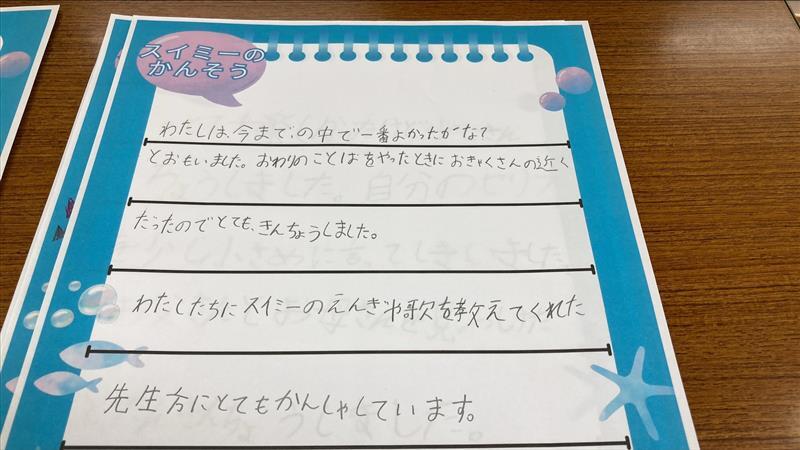 スイミーの
かんそう
わたしは、今までの中で一番よかったかな?
とおもいました。おわりのことばをやったときにおきゃくさんの近く
だったのでとても、きんちょうしました。
わたしたちにスイミーのえんぎや歌を教えてくれた
先生方にとてもかんしゃしています。